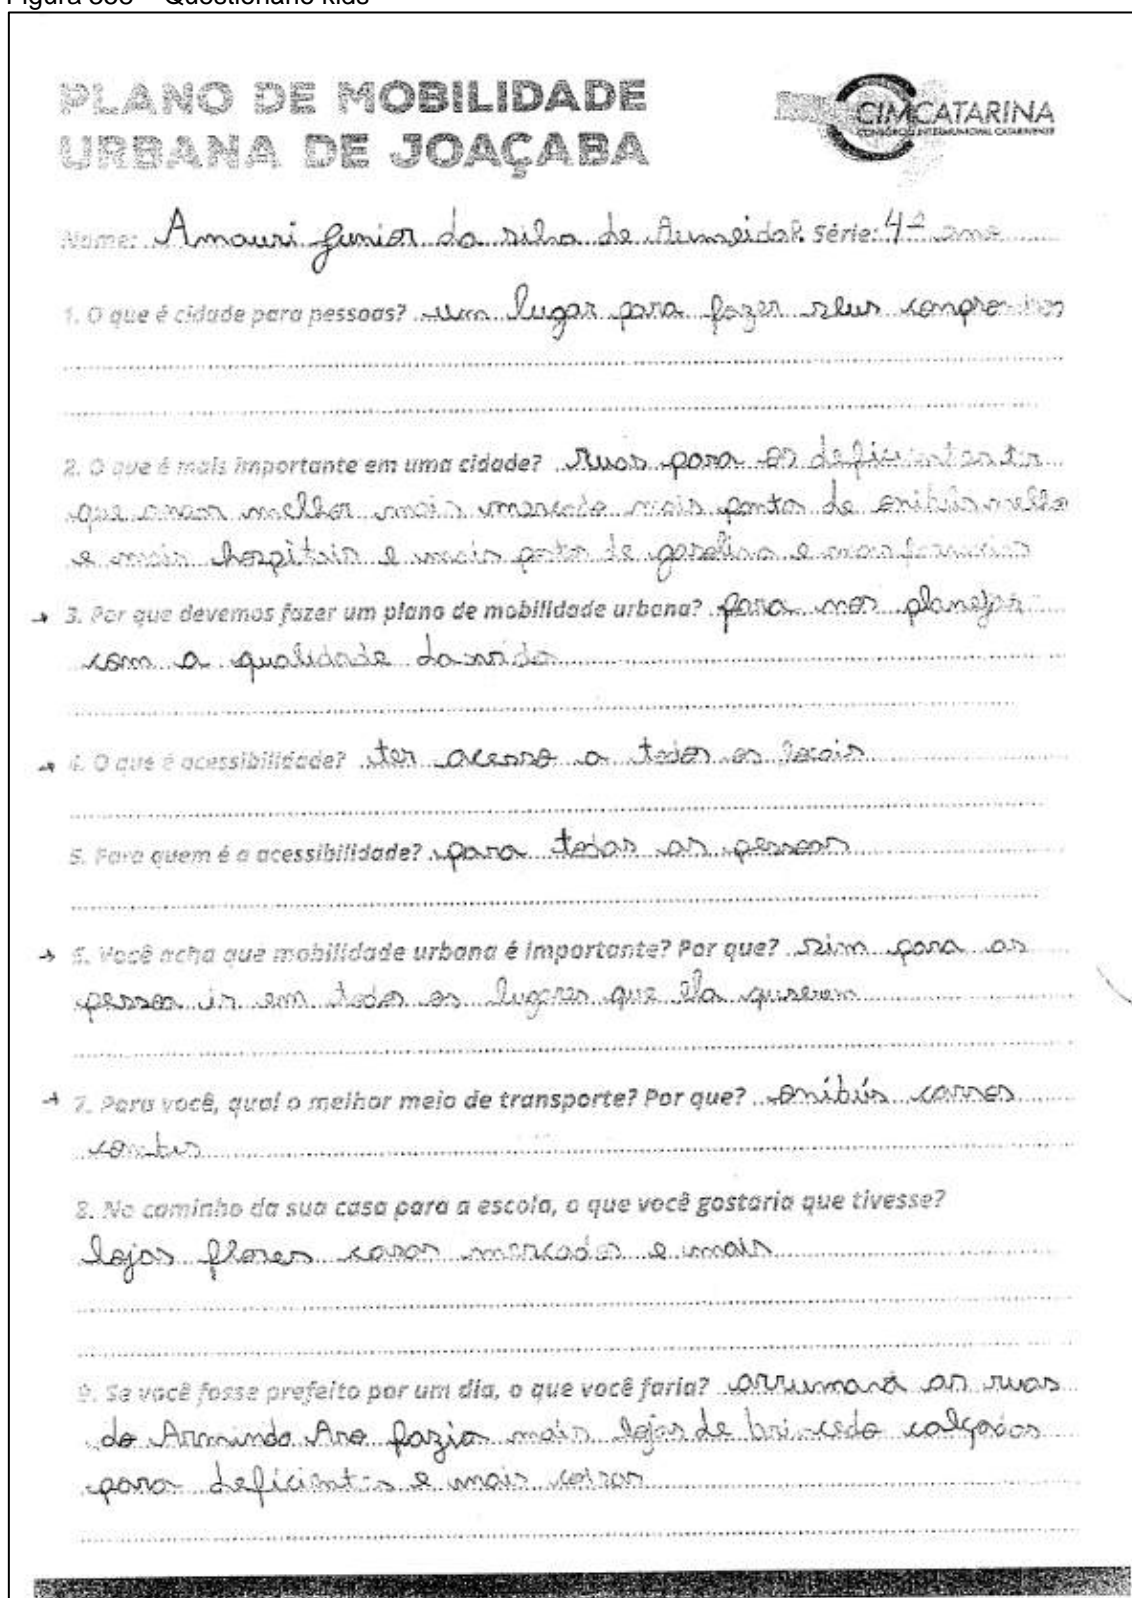 Questionário kids
PLANO DE MOBILIDADE
URBANA DE JOAÇABA
CIMCATARINA
CONSÓRCIO INTERMUNICIPAL CATARINENSE
Nome: Amauri junior da silva de Série: 4º ano
1. O que é cidade para pessoas? um lugar para fazer seus
2. O que é mais importante em uma cidade? ruas para os deficientes
que melhor mais mercado mais ponto de onibús
e mais hospitais e mais posto de gasolina e mais
3. Por que devemos fazer um plano de mobilidade urbana? para nos planejar
com a qualidade da vida
4. O que é acessibilidade? ter acesso a todos os locais
5. Para quem é a acessibilidade? para todas as pessoas
6. Você acha que mobilidade urbana é importante? Por que? sim para as
pessoa ir em todos os lugares que ela
7. Para você, qual o melhor meio de transporte? Por que? onibús carros
8. No caminho da sua casa para a escola, o que você gostaria que tivesse?
lojas flores casas mercados e mais
9. Se você fosse prefeito por um dia, o que você faria? as ruas
do Armindo Aro fazia mais lojas de calçadas
para deficientes e mais coisas